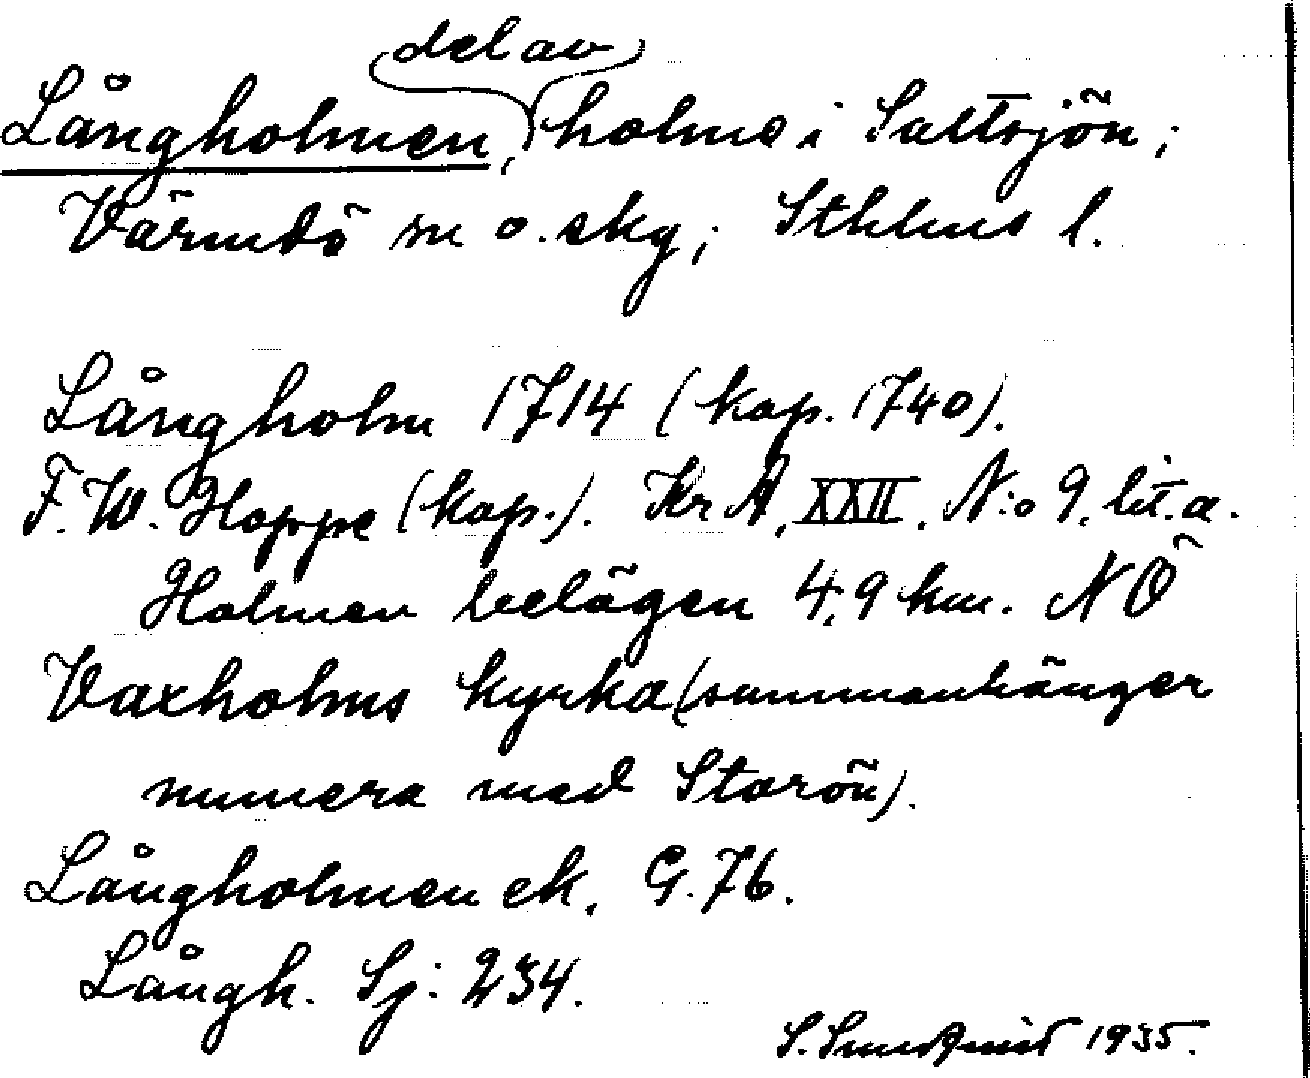 del av
Långholmen, holme i Saltsjön;
Värmdö sn o. skg; Sthlms l.
Långholm 1714 (kop. 1740).
F. W. Hoppe (kop.). Kr A, XXII, N:o 9, lit. a.
Holmen belägen 4,9 km. NÖ
Vaxholms kyrka (sammanhänger
numera med Storön).
Långholmen ek. G. 76.
Långh. Sj: 234.
S. Sundquist 1935.